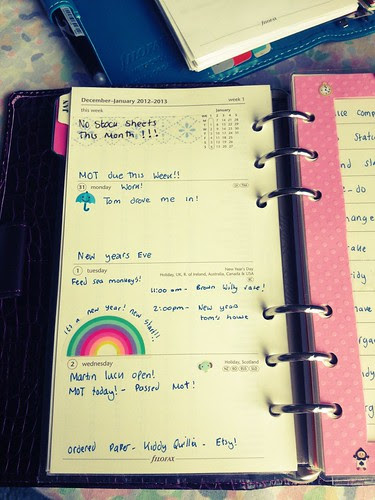 FILOFAX
December–January 2012–2013
week 1
this week
January
No Stock Sheets
This Month !!!
MOT due This Week!!
31 monday
Work!
Tom drove me in!
New years Eve
1 tuesday
New Year's Day
Holiday, UK, R. of Ireland, Australia, Canada & USA
Feed sea monkeys!
11:00 am - Brown Willy race!
2:00pm - New year
tom's house
it's a new year! new start!!
2 wednesday
Holiday, Scotland
Martin luck open!
MOT today! - Passed Mot!
ordered Paper - Kiddy Quillin - Etsy!
FILOFAX